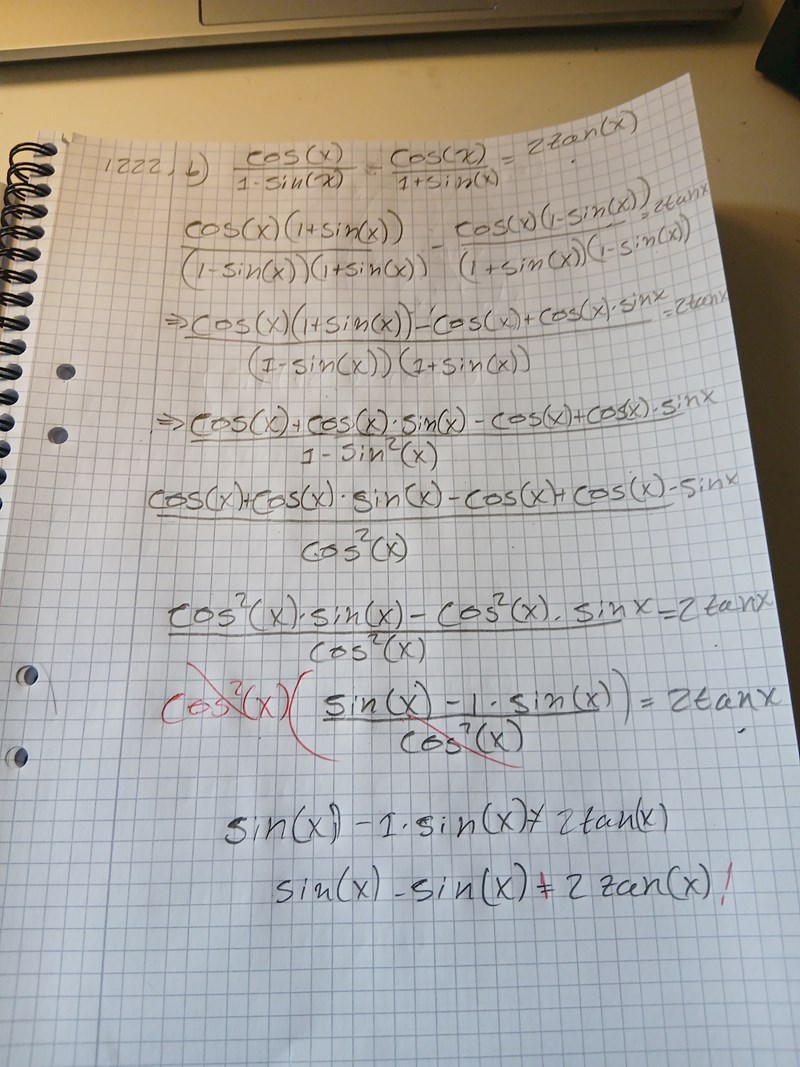 1222, b) cos(x)/(1-sin(x)) - cos(x)/(1+sin(x)) = 2tan(x)
cos(x)(1+sin(x))/((1-sin(x))(1+sin(x))) - cos(x)(1-sin(x))/((1+sin(x))(1-sin(x))) = 2tanx
⇒ (cos(x)(1+sin(x)) - cos(x) + cos(x)·sinx)/((1-sin(x))(1+sin(x))) = 2tanx
⇒ (cos(x) + cos(x)·sin(x) - cos(x) + cos(x)·sinx)/(1-sin²(x))
(cos(x) + cos(x)·sin(x) - cos(x) + cos(x)·sinx)/cos²(x)
(cos²(x)·sin(x) - cos²(x)·sinx)/cos²(x) = 2tanx
cos²(x)((sin(x) - 1·sin(x))/cos²(x)) = 2tanx
sin(x) - 1·sin(x) ≠ 2tan(x)
sin(x) - sin(x) ≠ 2tan(x)!